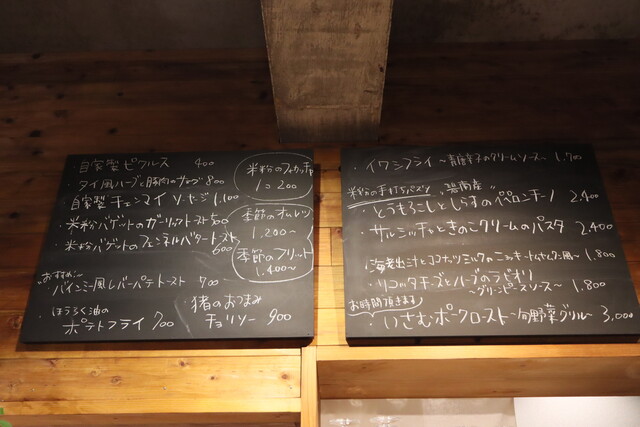 ・自家製ピクルス 400
・タイ風ハーブと豚肉の 800
自家製チェンマイソーセージ 1,100
・米粉バゲットのガーリックトースト 500
・米粉バゲットのフェンネルバタートースト
600
おすすめ!
バインミー風レバーパテトースト 900
・ほうろく油の
ポテトフライ 700
・猪のおつまみ
チョリソー 900
米粉のフォカッチャ
1コ 200
季節のオムレツ
1,200〜
季節のフリット
1,400〜
・イワシフライ 〜青唐辛子のクリームソース〜 1,700
米粉の手打ちパスタ
・とうもろこしとしらすのペペロンチーノ 2,400
・サルシッチャときのこクリームのパスタ 2,400
・海老出汁とココナッツミルクのニョッキ〜トムヤムクン風〜 1,800
・リコッタチーズとハーブのラビオリ
〜グリーンピースソース〜 1,800
お時間頂きます
・いさむポークロースト〜旬野菜グリル〜 3,000